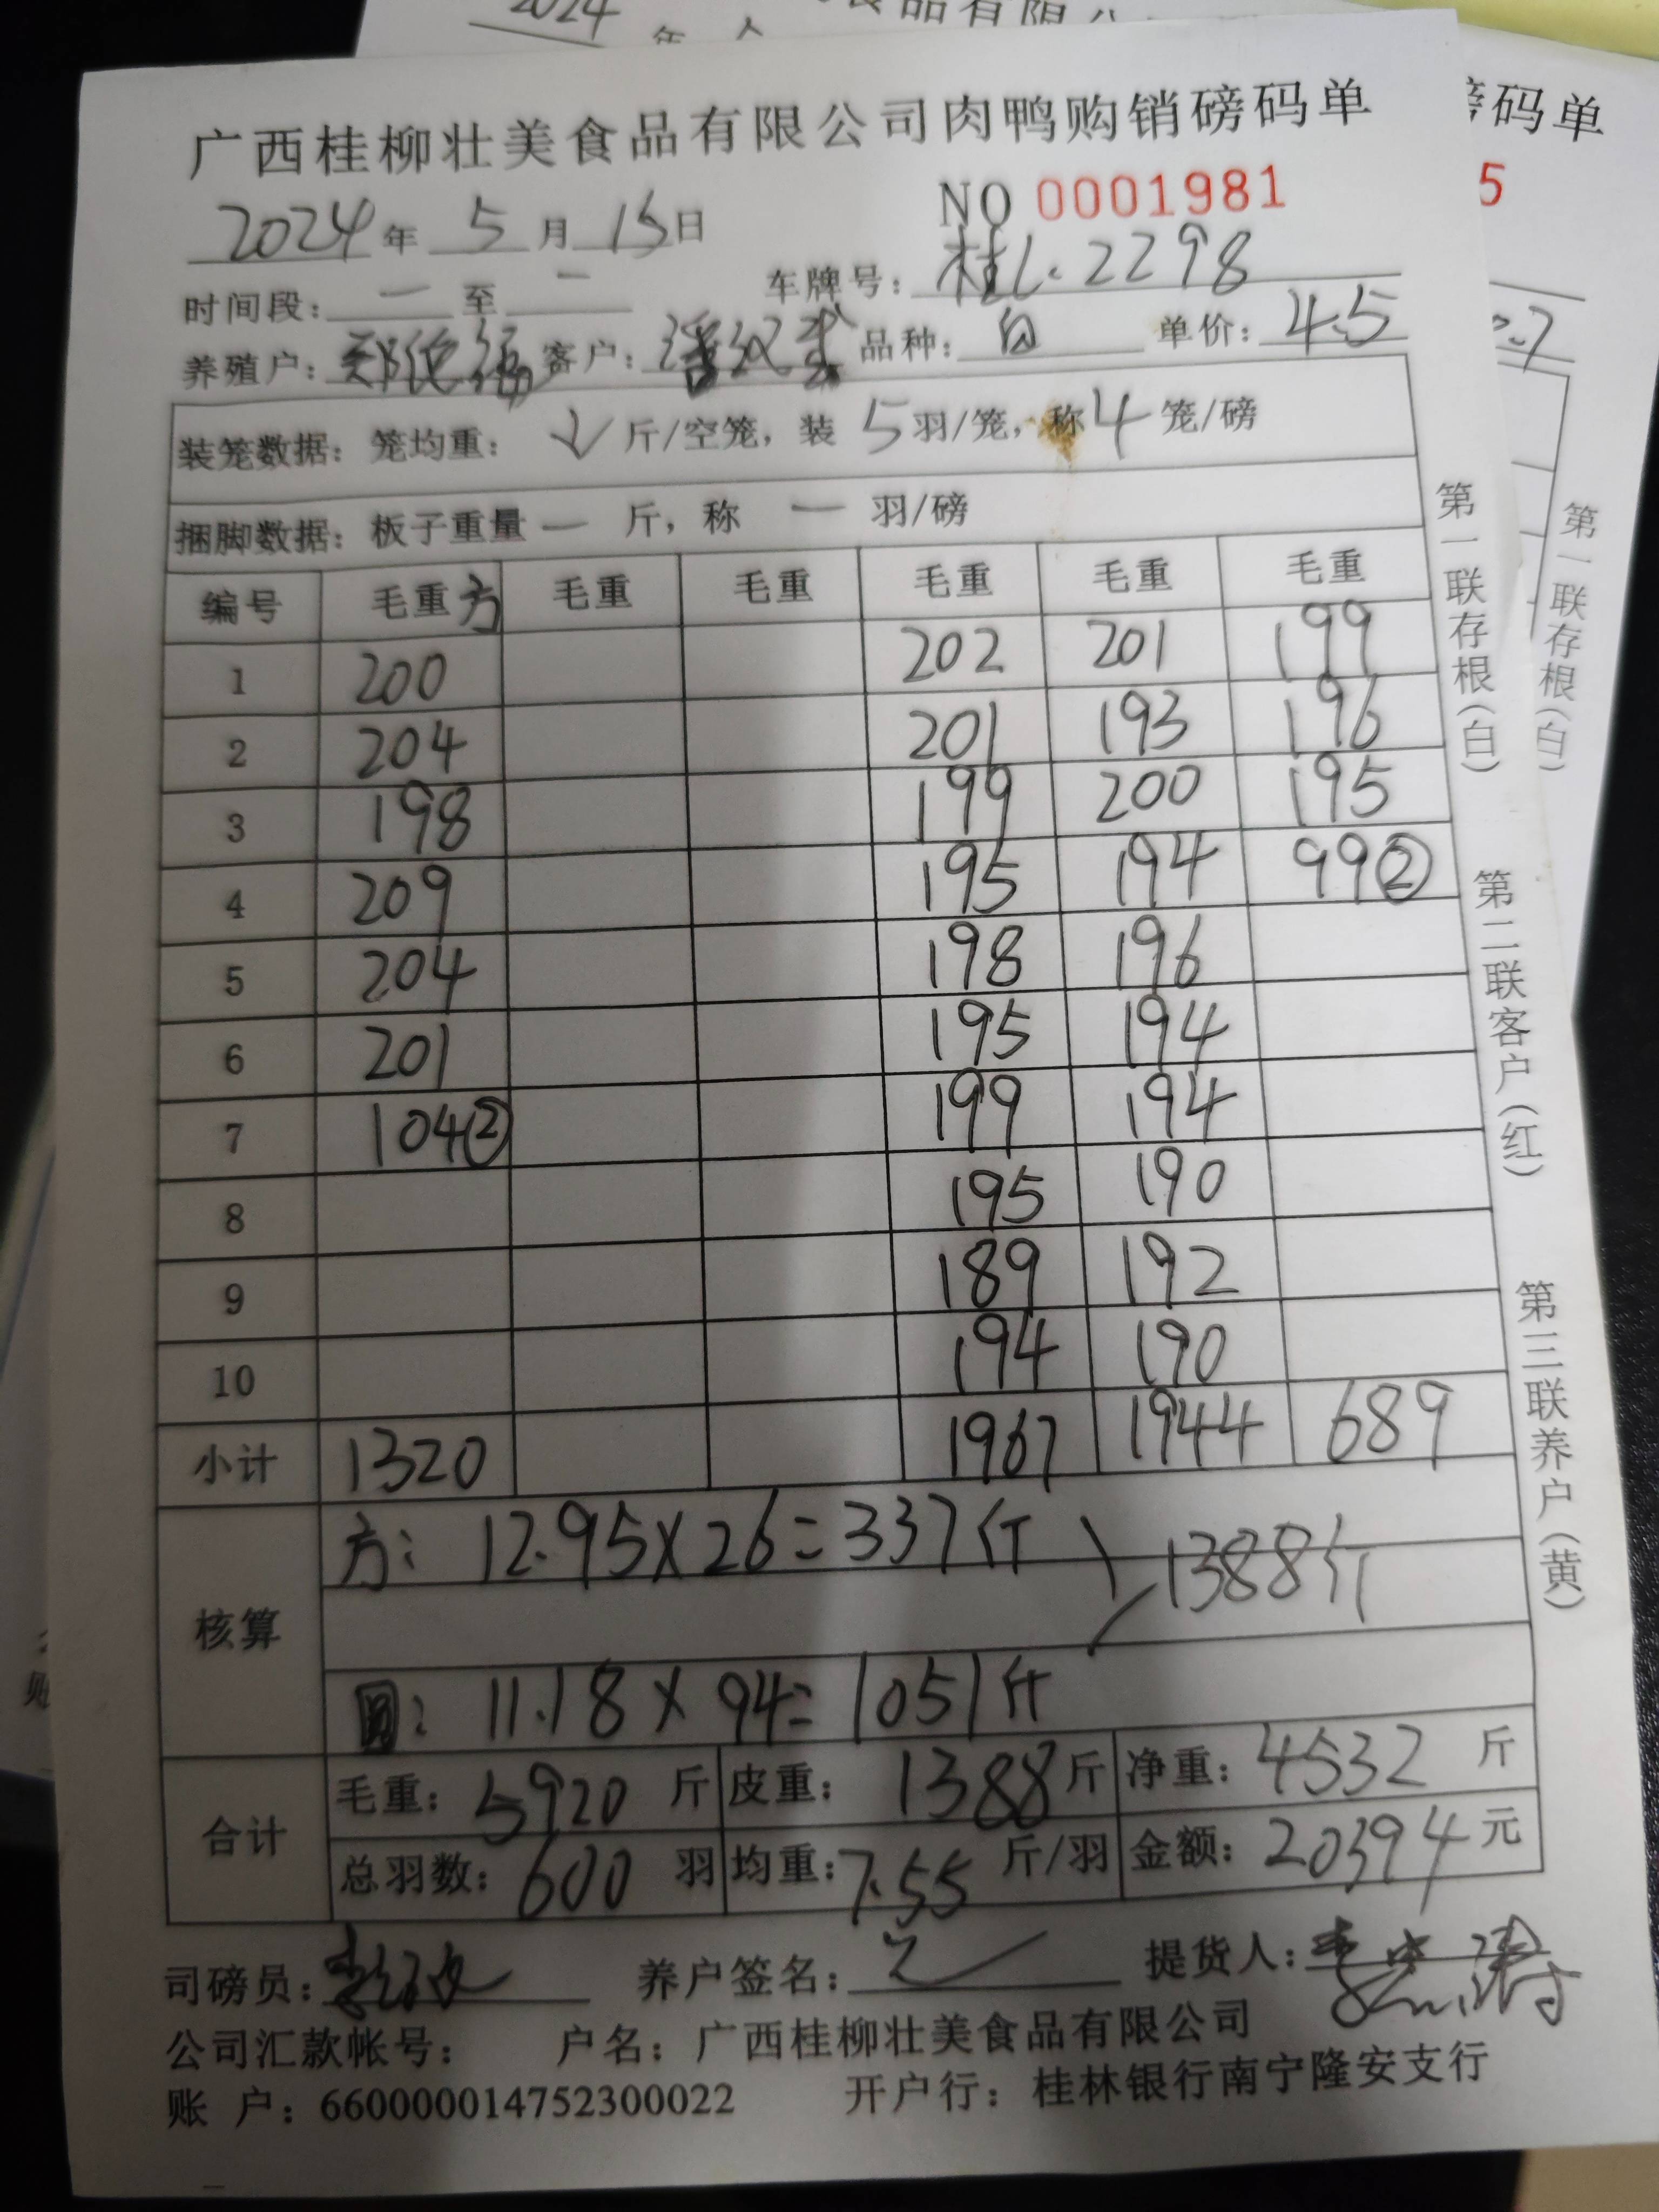 2024 年 人 食品有限公
广西桂柳壮美食品有限公司肉鸭购销磅码单
磅码单
NO 0001981
5
2024 年 5 月 15 日
时间段: 一 至 一 车牌号: 桂L·2298
养殖户: 郑 福 客户: 潘 品种: 白 单价: 4.5
装笼数据: 笼均重: 斤/空笼, 装 5 羽/笼, 称 4 笼/磅
捆脚数据: 板子重量 一 斤, 称 一 羽/磅
编号 毛重方 毛重 毛重 毛重 毛重 毛重
1 200 202 201 199
2 204 201 193 196
3 198 199 200 195
4 209 195 194 99②
5 204 198 196
6 201 195 194
7 104② 199 194
8 195 190
9 189 192
10 194 190
小计 1320 1967 1944 689
核算
方: 12.95×26=337斤
1388斤
圆: 11.18×94=1051斤
合计
毛重: 5920 斤 皮重: 1388 斤 净重: 4532 斤
总羽数: 600 羽 均重: 7.55 斤/羽 金额: 20394 元
司磅员: 李 养户签名: 提货人: 李
公司汇款帐号: 户名: 广西桂柳壮美食品有限公司
账 户: 660000014752300022 开户行: 桂林银行南宁隆安支行
第一联存根(白) 第二联客户(红) 第三联养户(黄)
第一联存根(白)